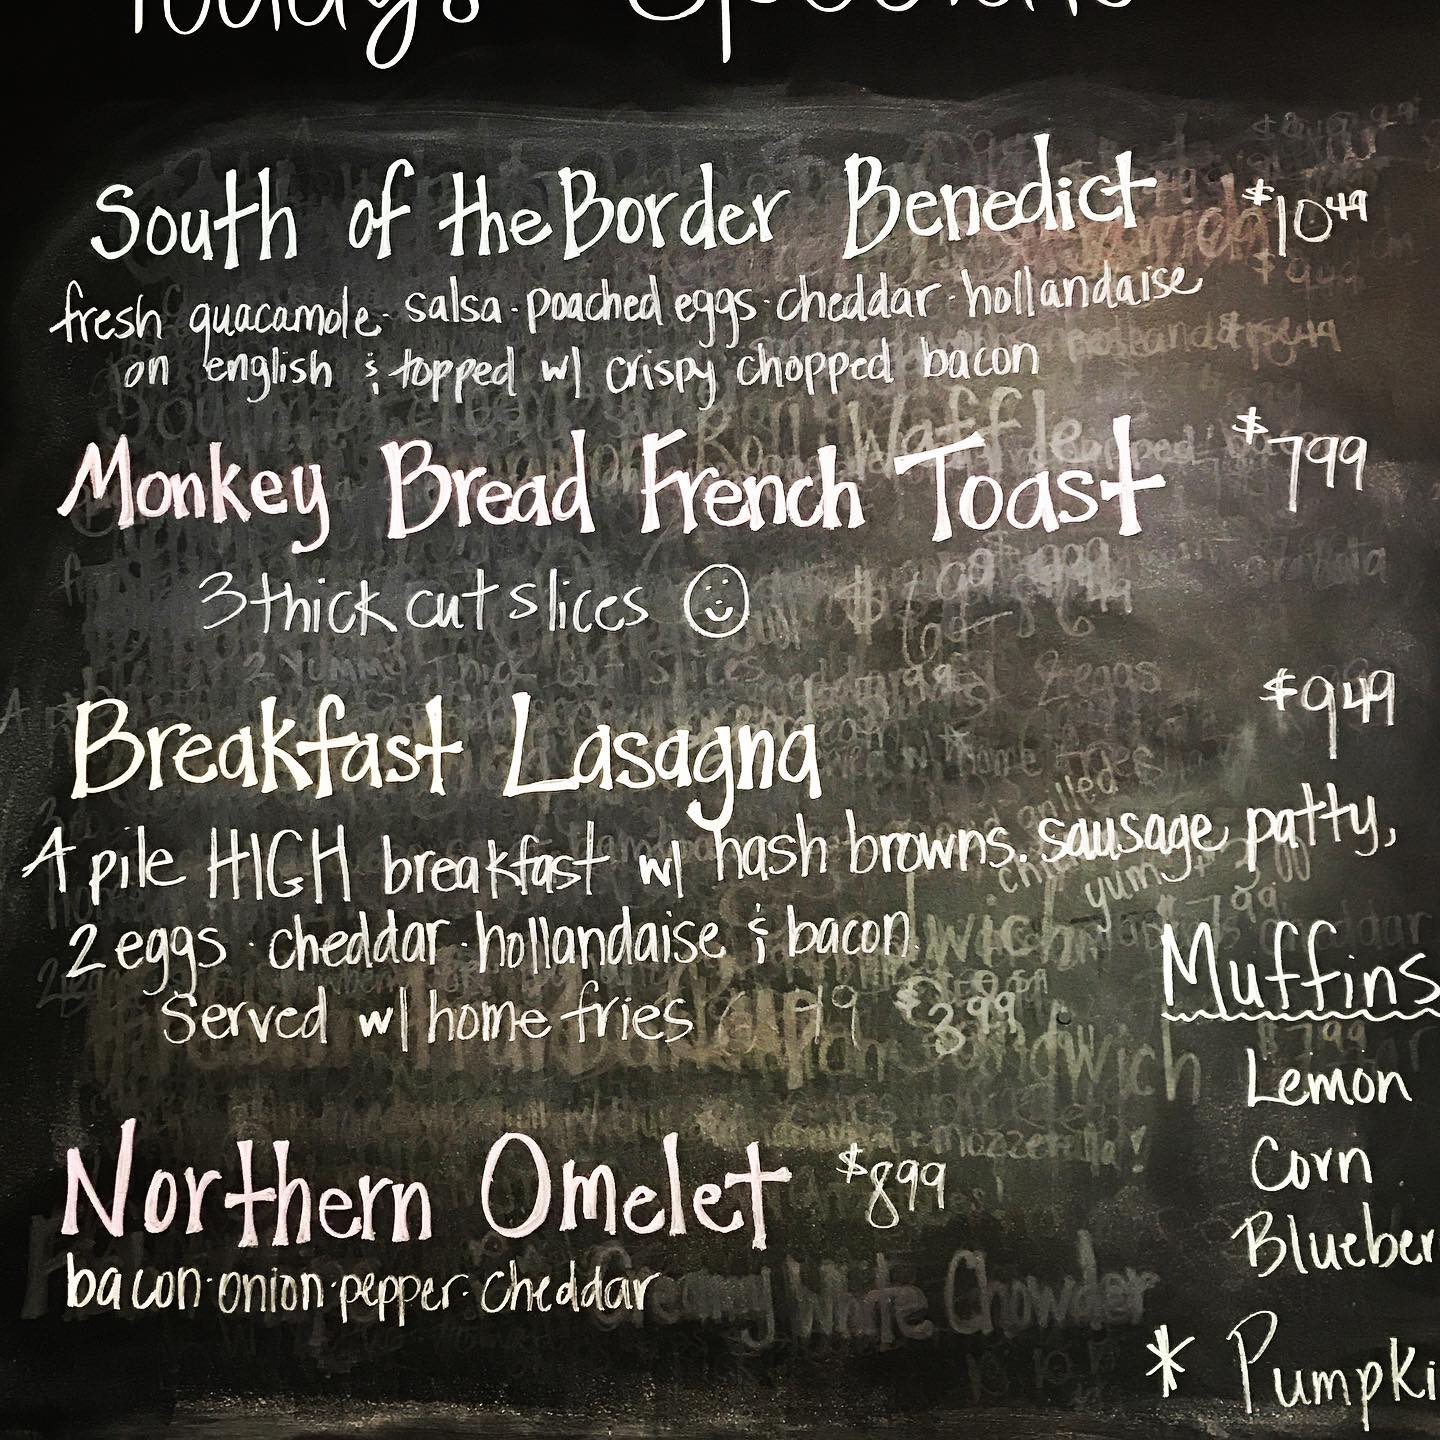 Today's Specials
South of the Border Benedict $10.49
fresh guacamole · salsa · poached eggs · cheddar · hollandaise
on english & topped w/ crispy chopped bacon
Monkey Bread French Toast $7.99
3 thick cut slices
Breakfast Lasagna $9.49
A pile HIGH breakfast w/ hash browns. sausage patty,
2 eggs · cheddar · hollandaise & bacon.
Served w/ home fries
Northern Omelet $8.99
bacon · onion · pepper · cheddar
Muffins
Lemon
Corn
Blueber
* Pumpki